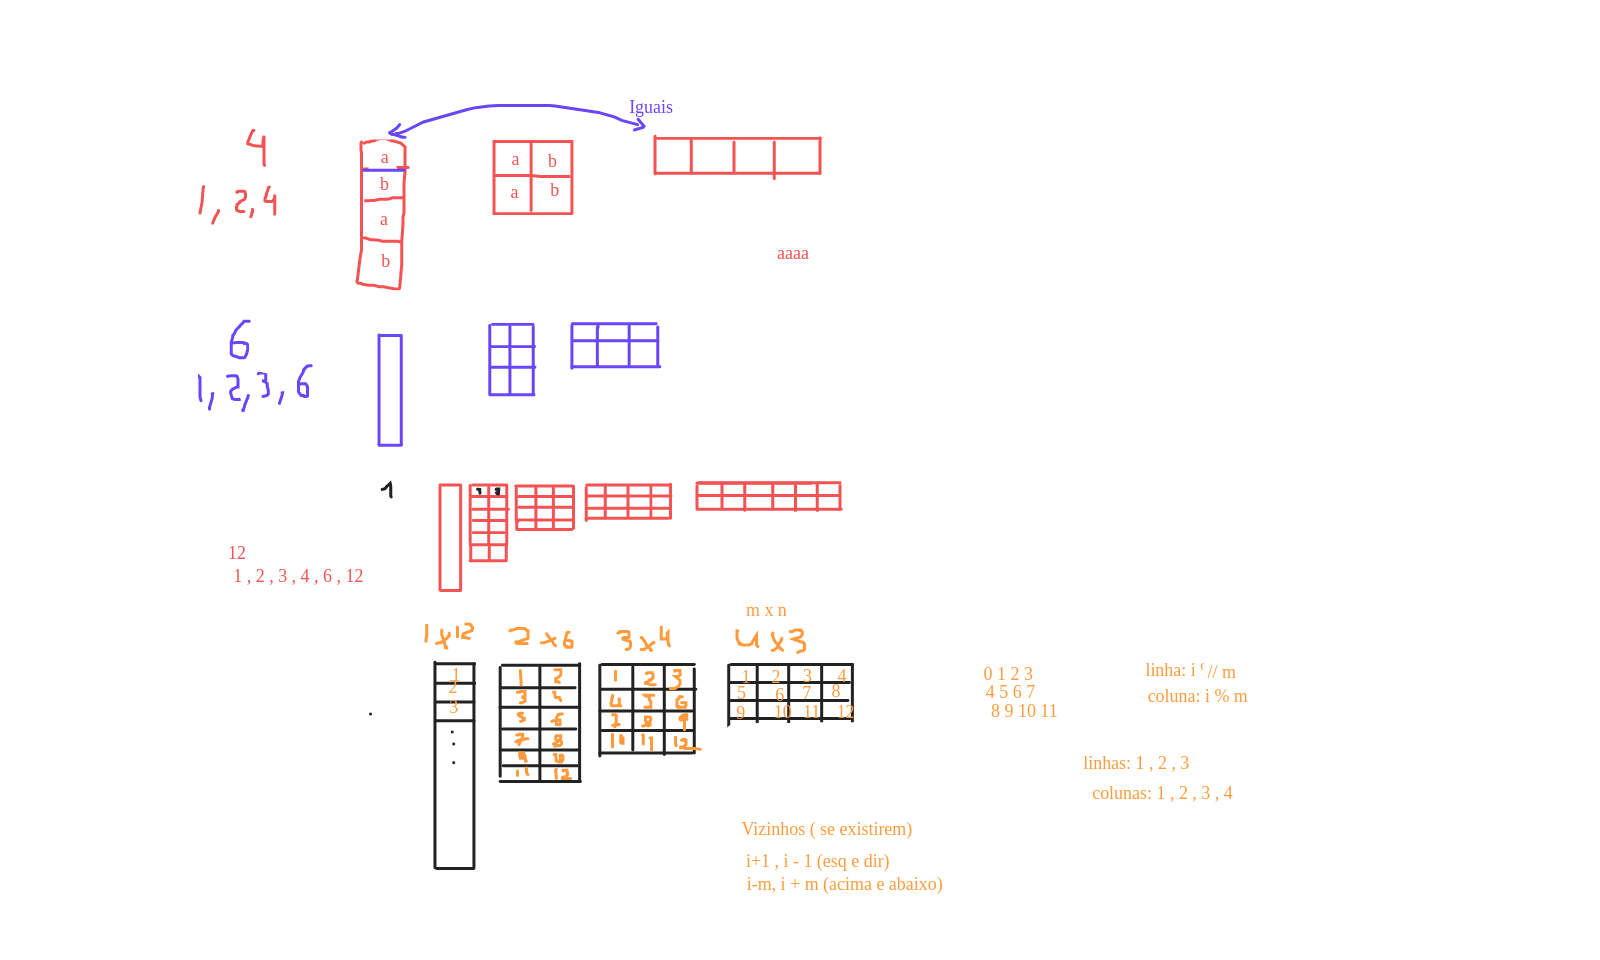 Iguais
4
1, 2, 4
a
b
a
b
a b
a b
aaaa
6
1, 2, 3, 6
1
12
1 , 2 , 3 , 4 , 6 , 12
m x n
1 x 12
2 x 6
3 x 4
4 x 3
1
2
3
1 2
3 4
5 6
7 8
9 10
11 12
1 2 3
4 5 6
7 8 9
10 11 12
1 2 3 4
5 6 7 8
9 10 11 12
0 1 2 3
4 5 6 7
8 9 10 11
linha: i // m
coluna: i % m
linhas: 1 , 2 , 3
colunas: 1 , 2 , 3 , 4
Vizinhos ( se existirem)
i+1 , i - 1 (esq e dir)
i-m, i + m (acima e abaixo)